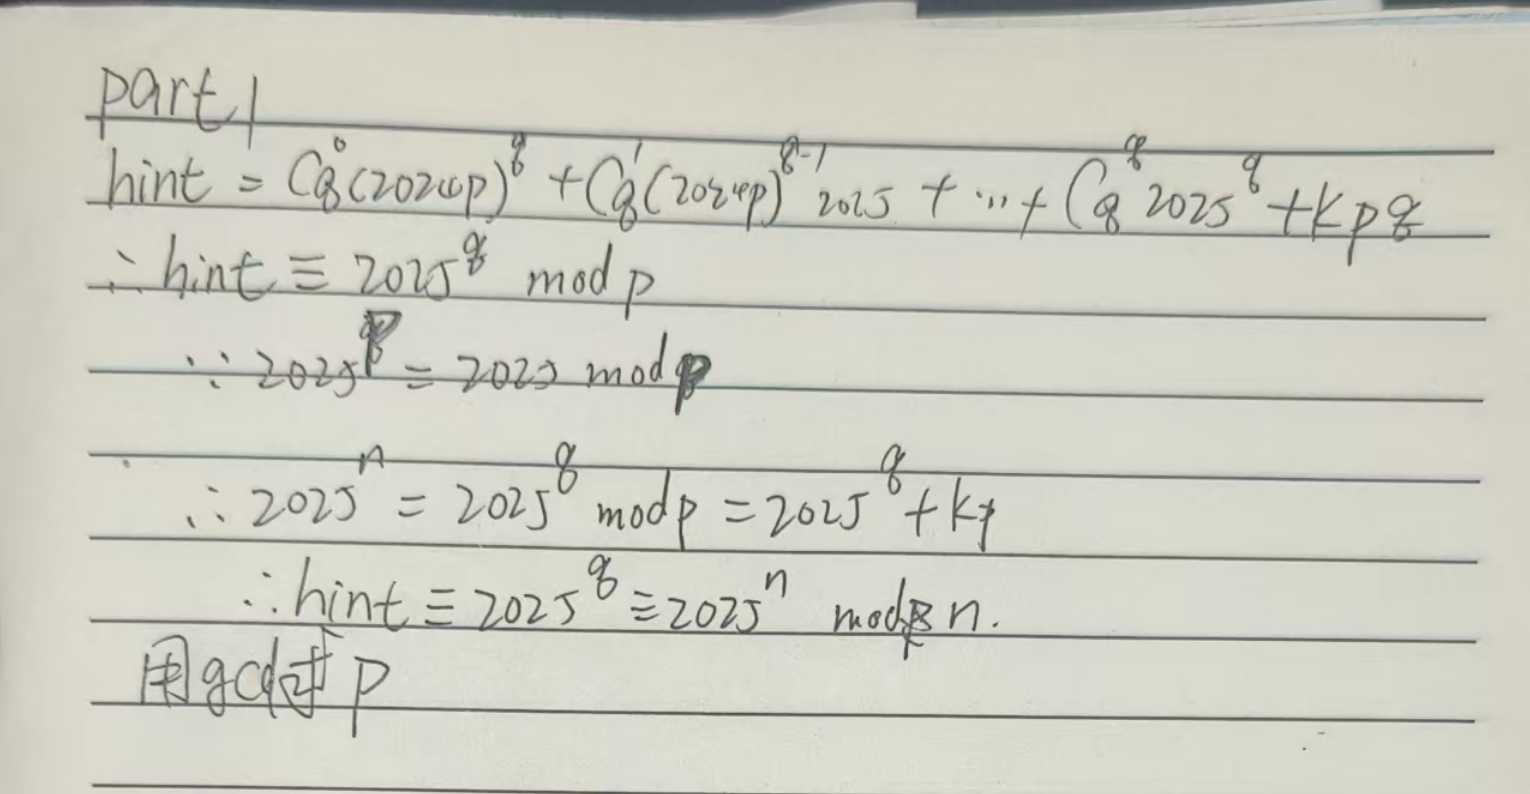 part1
hint = C_q^0(2024p)^q + C_q^1(2024p)^{q-1} 2025 + ... + C_q^q 2025^q + kpq
∴ hint ≡ 2025^q mod p
∵ 2025^p = 2025 mod p
∴ 2025^n = 2025^q mod p = 2025^q + kp
∴ hint ≡ 2025^q ≡ 2025^n mod n.
用gcd求p